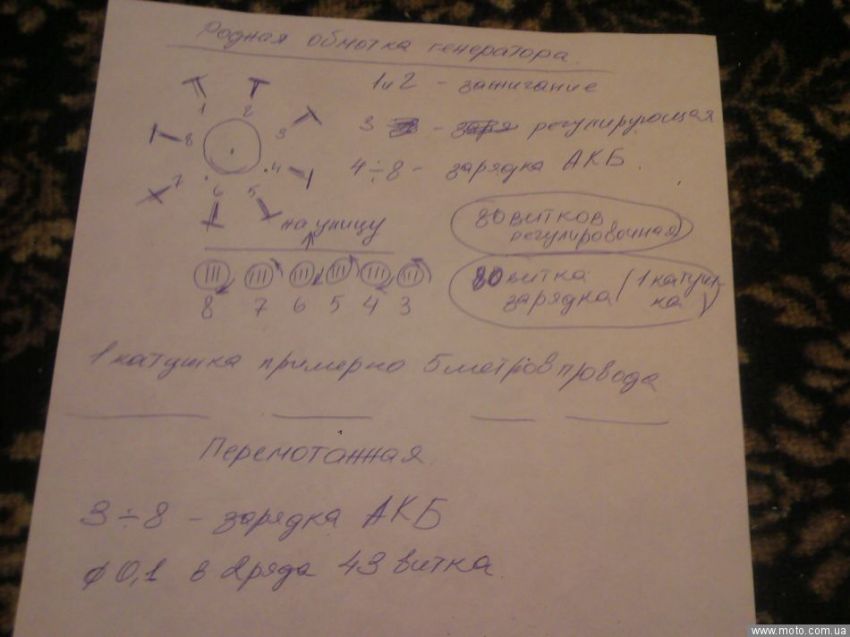 Родная обмотка генератора.
1 и 2 - зажигание
3 - регулирующая
4÷8 - зарядка АКБ.
1
2
3
4
5
6
7
8
на улицу
80 витков
регулировочная
80 витка
зарядка (1 катуш-
ка)
8 7 6 5 4 3
1 катушка примерно 5 метров провода
Перемотанная
3÷8 - зарядка АКБ
φ 0,1 в 2 ряда 43 витка.
www.moto.com.ua